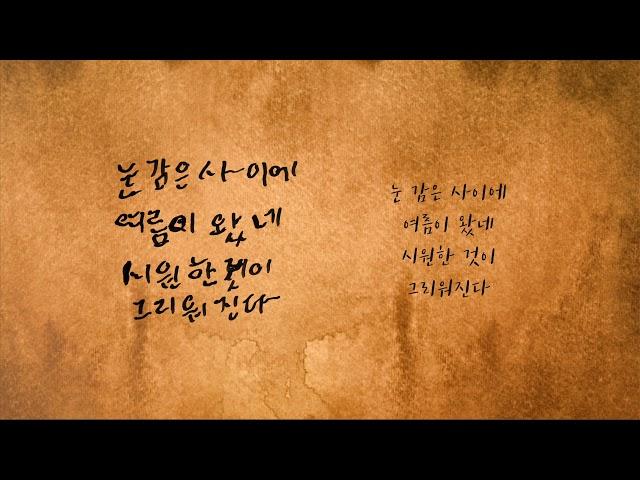 눈 감은 사이에
여름이 왔네
시원한 것이
그리워진다
눈 감은 사이에
여름이 왔네
시원한 것이
그리워진다